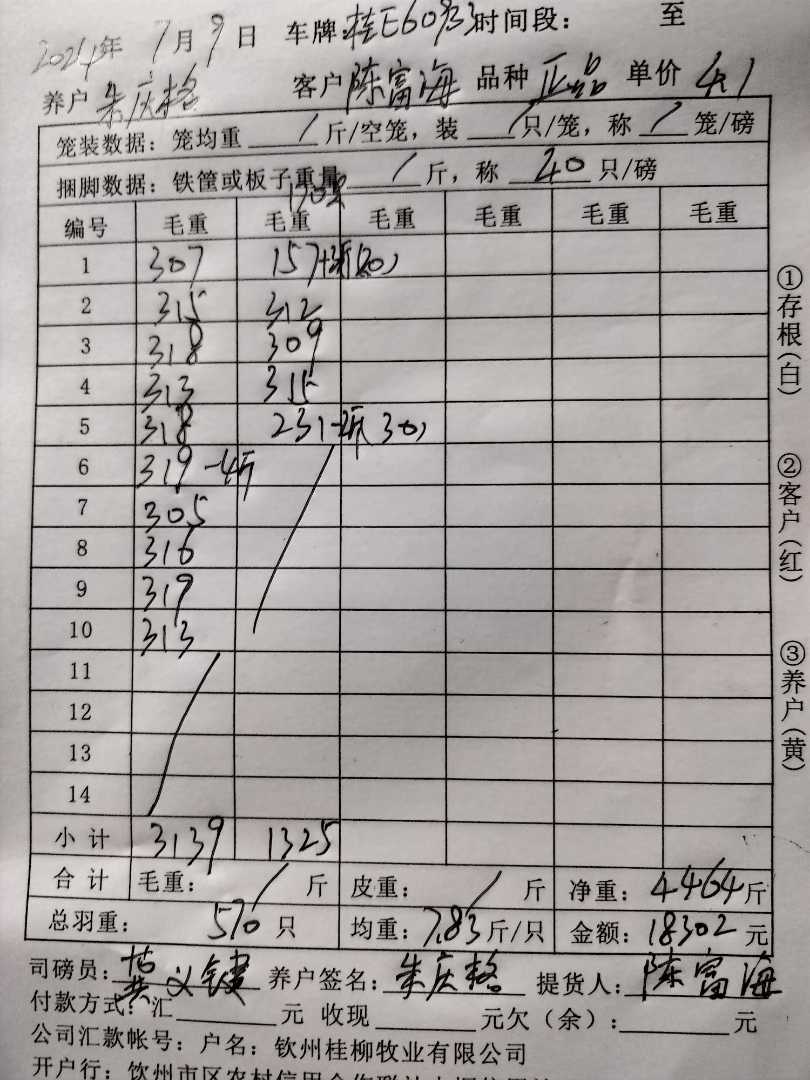 2024年 7月9日 车牌:桂E60933 时间段: 至
养户 朱庆格 客户 陈富海 品种 正品 单价 4.1
笼装数据: 笼均重 / 斤/空笼, 装 / 只/笼, 称 / 笼/磅
捆脚数据: 铁筐或板子重量 / 斤, 称 40 只/磅
编号 毛重 毛重 毛重 毛重 毛重 毛重
1 307 157
2 315 312
3 318 309
4 313 315
5 318 231-2斤 30只
6 319 -4斤
7 305
8 316
9 319
10 313
11
12
13
14
小计 3139 1325
合计 毛重: / 斤 皮重: / 斤 净重: 4464斤
总羽重: 570 只 均重: 7.83 斤/只 金额: 18302 元
司磅员: 黄义键 养户签名: 朱庆格 提货人: 陈富海
付款方式: 汇 元 收现 元欠(余): 元
公司汇款帐号: 户名: 钦州桂柳牧业有限公司
开户行: 钦州市区农村信用合作联社
①存根(白)
②客户(红)
③养户(黄)